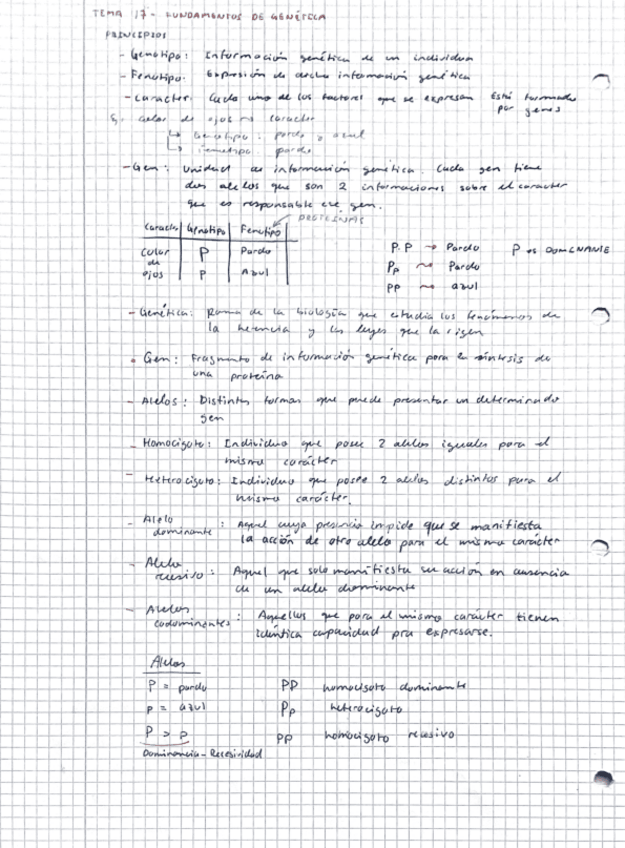 TEMA 17 - FUNDAMENTOS DE GENÉTICA
PRINCIPIOS
- Genotipo: Información genética de un individuo
- Fenotipo: Expresión de dicha información genética
- Caracter: Cada uno de los factores que se expresan Está formado
por genes
Ej. Color de ojos caracter
↳ Genotipo: pardo y azul
↳ Fenotipo: pardo
- Gen: Unidad de información genética. Cada gen tiene
dos alelos que son 2 informaciones sobre el caracter
que es responsable ese gen.
PROTEÍNAS
Caracter Genotipo Fenotipo
Color de ojos P Pardo
p Azul
P.P → Pardo P es DOMINANTE
Pp → Pardo
pp → azul
- Genética: Rama de la biología que estudia los fenómenos de
la herencia y las leyes que la rigen
• Gen: Fragmento de información genética para la síntesis de
una proteína
- Alelos: Distintas formas que puede presentar un determinado
gen
- Homocigoto: Individuo que posee 2 alelos iguales para el
mismo carácter
- Heterocigoto: Individuo que posee 2 alelos distintos para el
mismo carácter.
- Alelo dominante: Aquel cuya presencia impide que se manifiesta
la acción de otro alelo para el mismo carácter
- Alelo recesivo: Aquel que solo manifiesta su acción en ausencia
de un alelo dominante
- Alelos codominantes: Aquellos que para el mismo carácter tienen
idéntica capacidad pra expresarse.
Alelos
P = pardo PP homocigoto dominante
p = azul Pp heterocigoto
P > p pp homocigoto recesivo
Dominancia - Recesividad